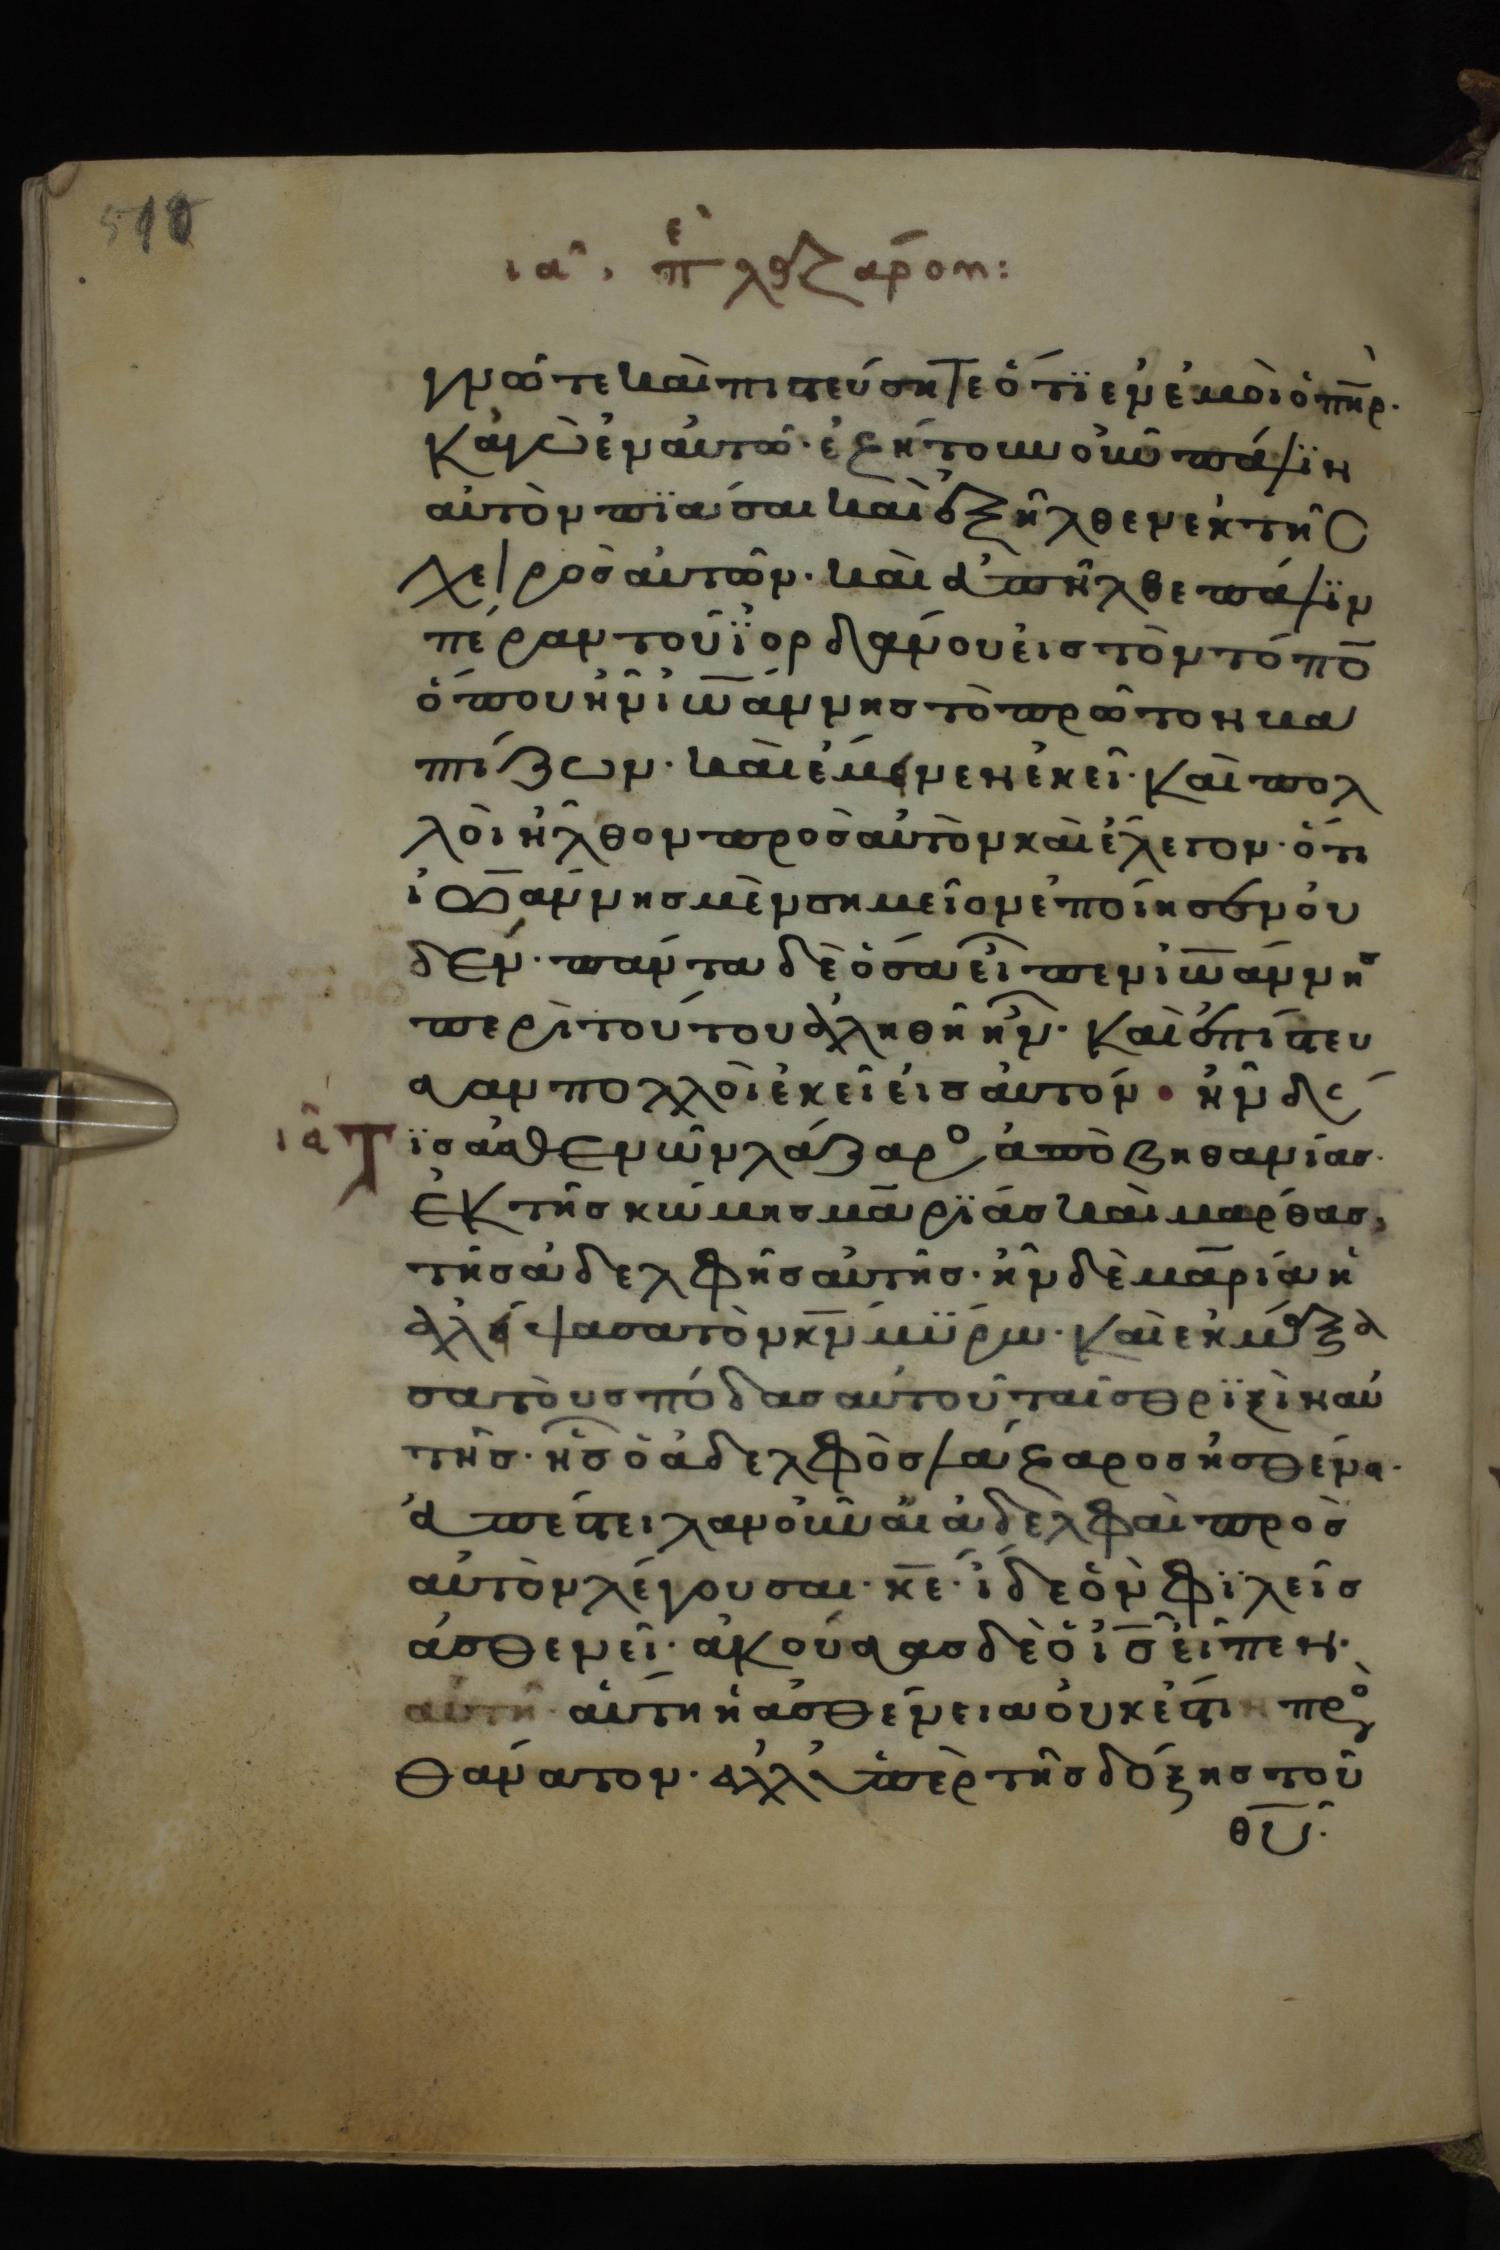 510
ια περὶ λαζάρου:
γνῶτε καὶ πιστεύσητε ὅτϊ ἐν ἐμοὶ ὁ πηρ·
κἀγὼ ἐν αὐτῶ· ἐζήτουν οὖν πάλϊν
αὐτὸν πϊάσαι καὶ ἐξῆλθεν ἐκ τῆς
χειρὸς αὐτῶν· καὶ ἀπῆλθε πάλϊν
πέραν τοῦ ϊορδάνου εἰς τὸν τόπο
ὅπου ἦν ἰωάννης τὸ πρῶτον βα
πτίζων· καὶ ἔμενεν ἐκεῖ· καὶ πολ
λοὶ ἦλθον πρὸς αὐτὸν καὶ ἔλεγον· ὅτι
ἰωάννης μὲν σημεῖον ἐποίησεν οὐ
δέν· πάντα δὲ ὅσα εἶπεν ἰωάννης
περὶ τούτου ἀληθῆ ἦν· καὶ ἐπίστευ
σαν πολλοὶ ἐκεῖ εἰς αὐτόν· ἦν δέ
ια Τϊς ἀσθενῶν λάζαρος ἀπὸ βηθανίας·
ἐκ τῆς κώμης μαρϊάς καὶ μάρθας,
τῆς ἀδελφῆς αὐτῆς· ἦν δὲ μαρία ἡ
ἀλείψασα τὸν κν μϋρω· καὶ ἐκμάξα
σα τοὺς πόδας αὐτοῦ ταῖς θρϊξὶν αὐ
τῆς· ἧς ὁ ἀδελφὸς λάζαρος ἠσθένει·
ἀπέστειλαν οὖν αἱ ἀδελφαὶ πρὸς
αὐτὸν λέγουσαι· κε· ἴδε ὃν φϊλεῖς
ἀσθενεῖ· ἀκούσας δὲ ὁ ις εἶπεν·
αὐτῆ· αὕτη ἡ ἀσθένεια οὐκ ἔστι πρὸς
θάνατον· ἀλλ' ὑπὲρ τῆς δόξης τοῦ
θυ·